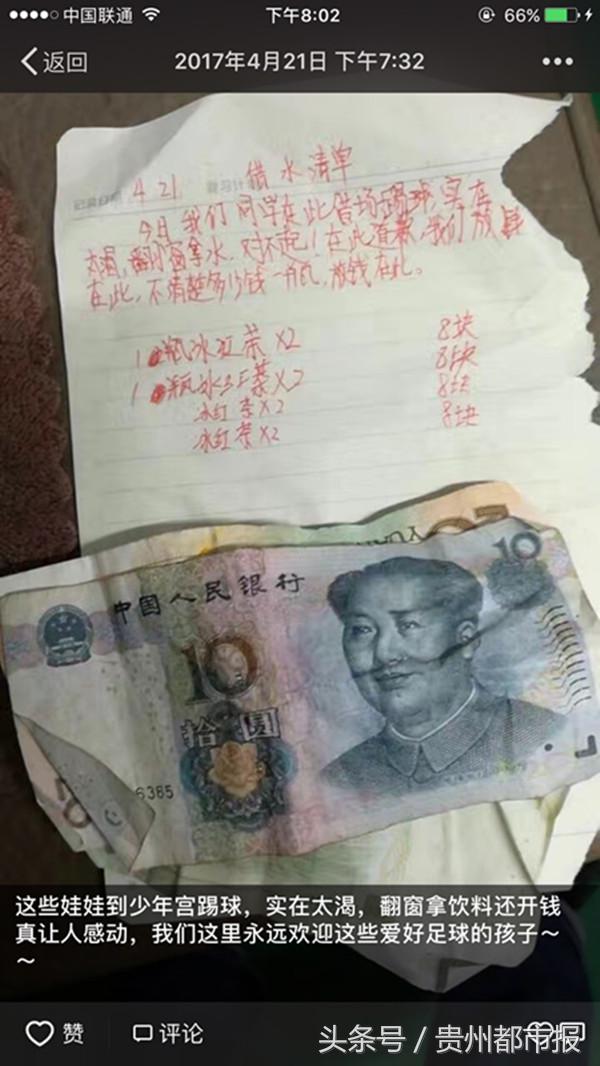 中国联通 下午8:02 66%
返回 2017年4月21日 下午7:32
4.21 借水清单
今日我们同学在此借场踢球,实在
太渴,翻窗拿水,对不起!在此道歉,我们放钱
在此,不清楚多少钱一瓶,放钱在此。
1 瓶冰红茶×2 8块
1 瓶冰红茶×2 8块
冰红茶×2 8块
冰红茶×2 8块
10
中国人民银行
10
拾圆
6385
这些娃娃到少年宫踢球,实在太渴,翻窗拿饮料还开钱
真让人感动,我们这里永远欢迎这些爱好足球的孩子~
~
赞 评论
头条号 / 贵州都市报